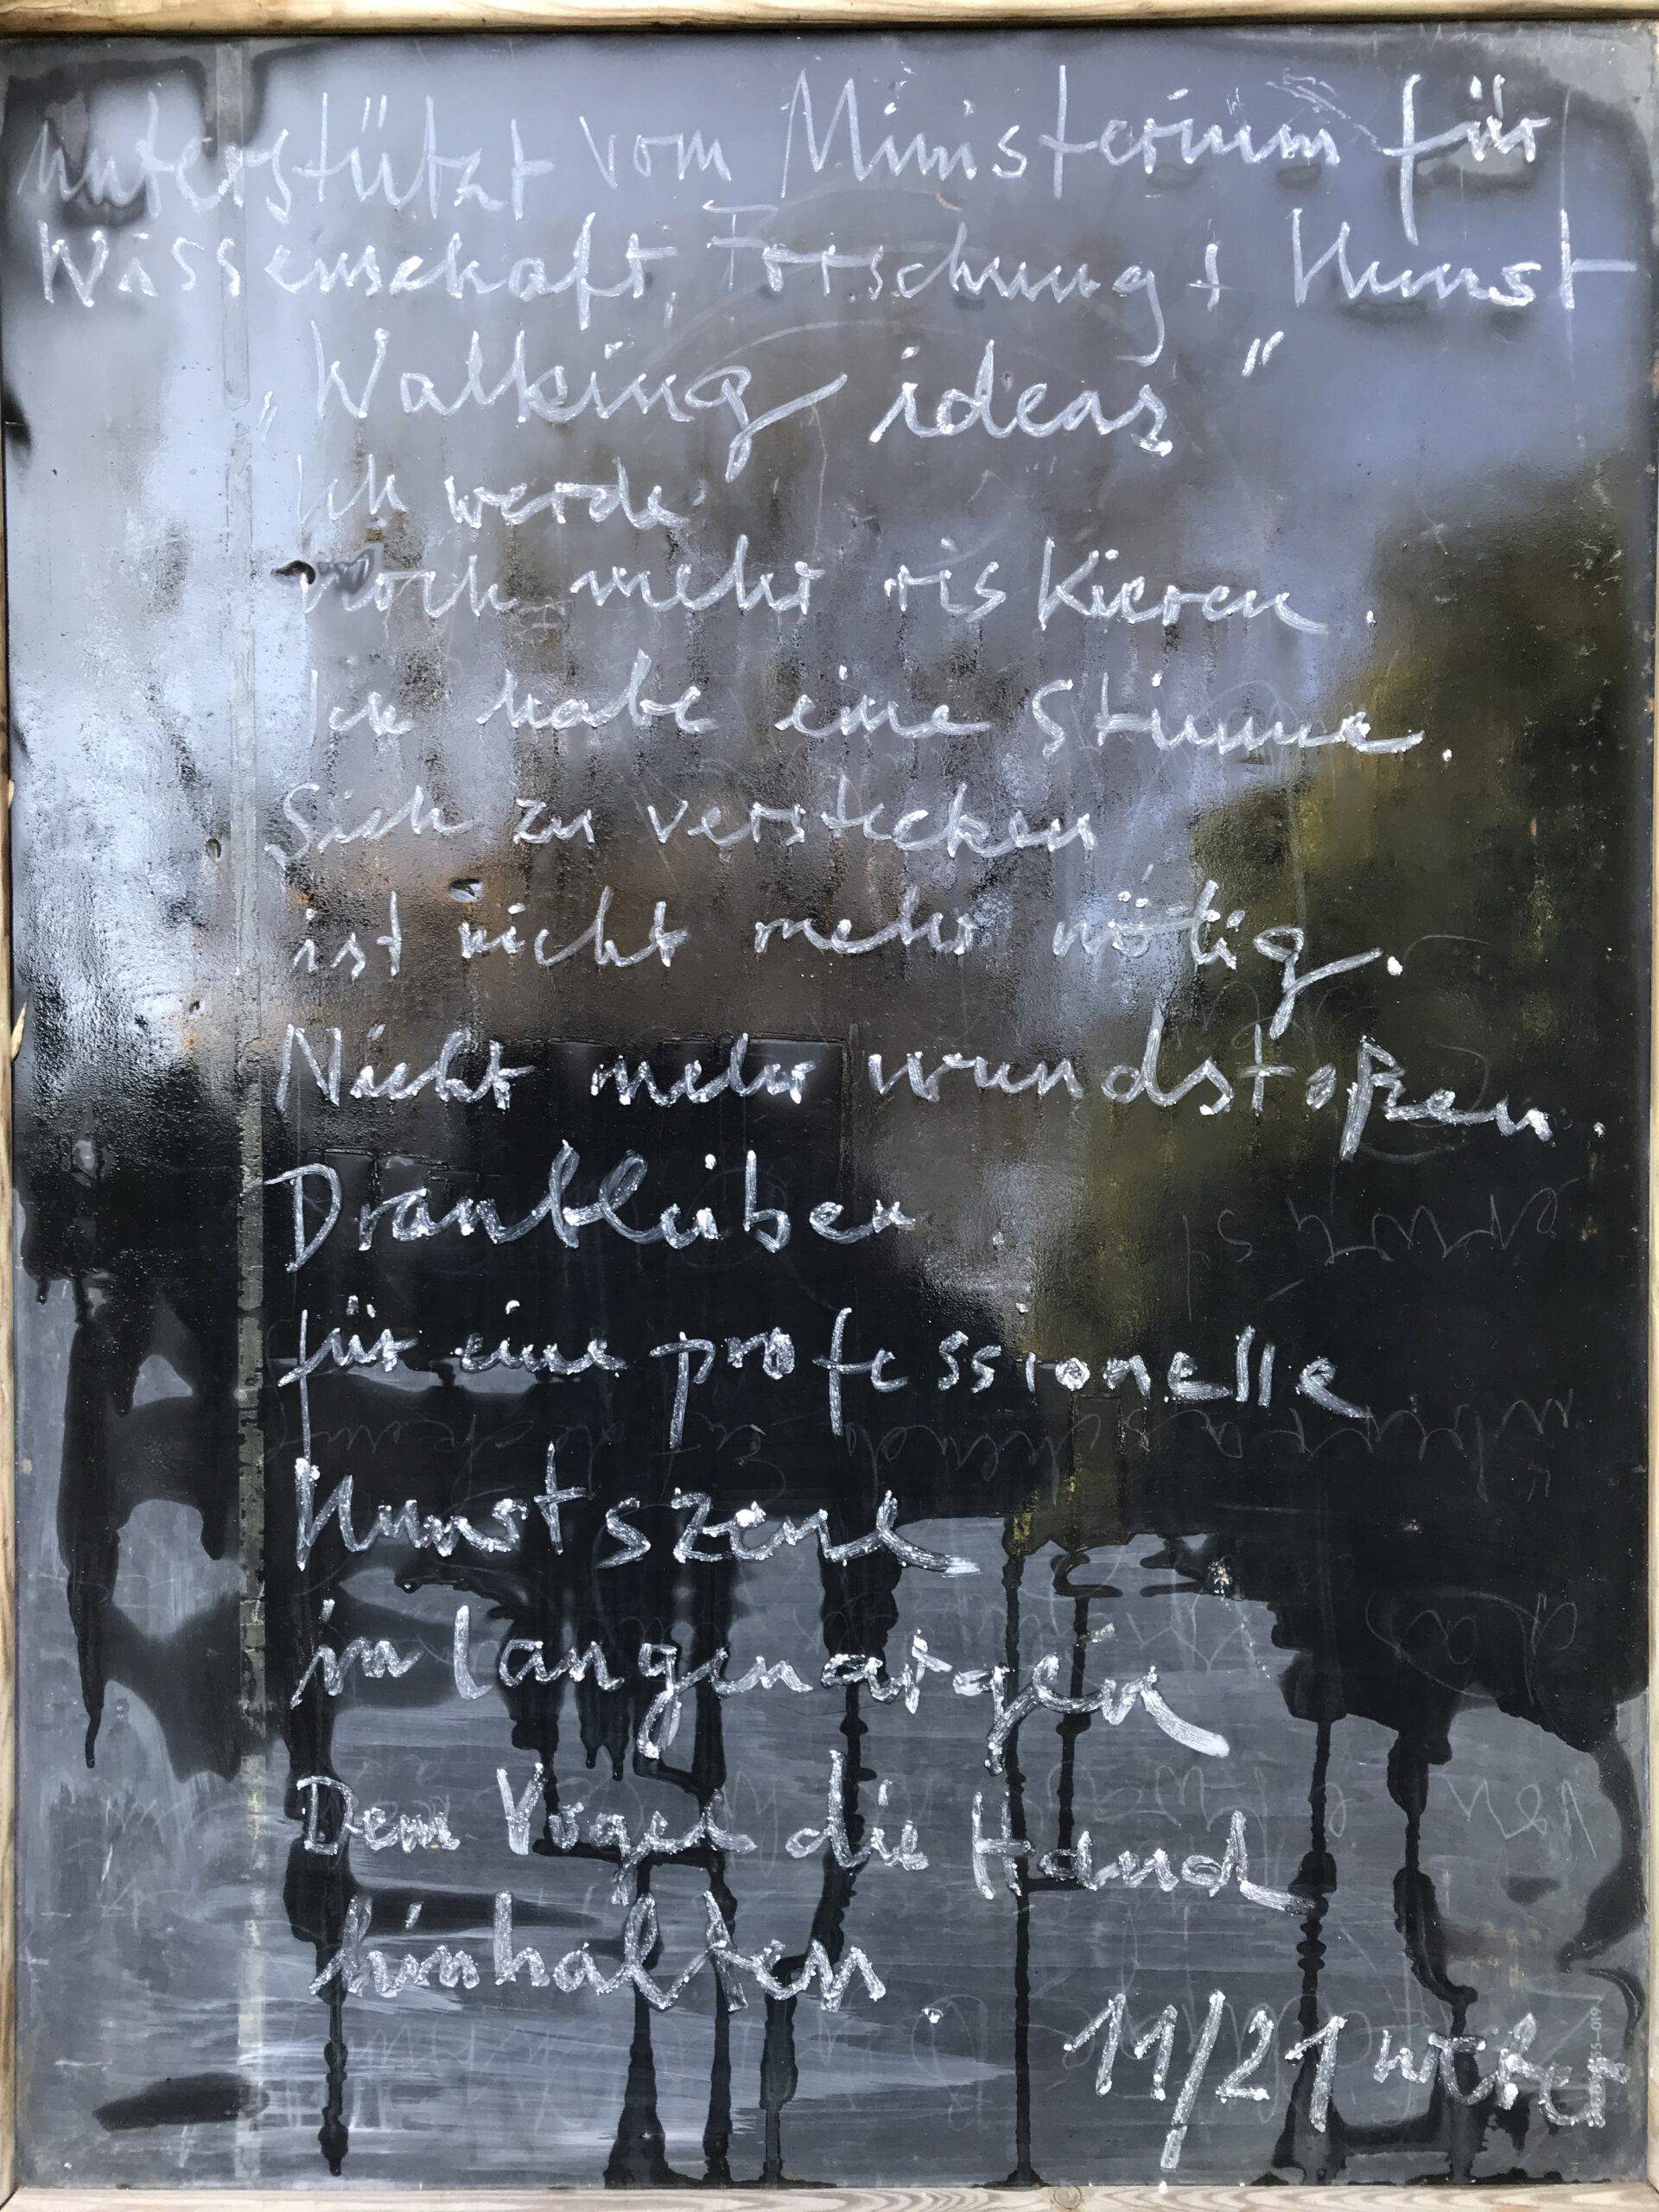 unterstützt vom Ministerium für
Wissenschaft, Forschung + Kunst
„Walking ideas"
Ich werde
noch mehr riskieren.
Ich habe eine Stimme.
Sich zu verstecken
ist nicht mehr nötig.
Nicht mehr wundstoßen.
Dranbleiben
für eine professionelle
Kunstszene
in Langenargen
Dem Vogel die Hand
hinhalten.
11/21